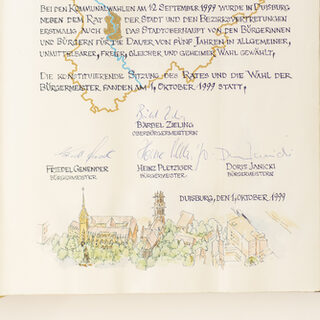 BEI DEN KOMMUNALWAHLEN AM 12. SEPTEMBER 1999 WURDE IN DUISBURG
NEBEN DEM RAT DER STADT UND DEN BEZIRKSVERTRETUNGEN
ERSTMALS AUCH DAS STADTOBERHAUPT VON DEN BÜRGERINNEN
UND BÜRGERN FÜR DIE DAUER VON FÜNF JAHREN IN ALLGEMEINER,
UNMITTELBARER, FREIER, GLEICHER UND GEHEIMER WAHL GEWÄHLT.
DIE KONSTITUIERENDE SITZUNG DES RATES UND DIE WAHL DER
BÜRGERMEISTER FANDEN AM 1. OKTOBER 1999 STATT.
BÄRBEL ZIELING
OBERBÜRGERMEISTERIN
FRIEDEL GENENDER HEINZ PLETZIGER DORIS JANICKI
BÜRGERMEISTER BÜRGERMEISTER BÜRGERMEISTERIN
DUISBURG, DEN 1. OKTOBER 1999